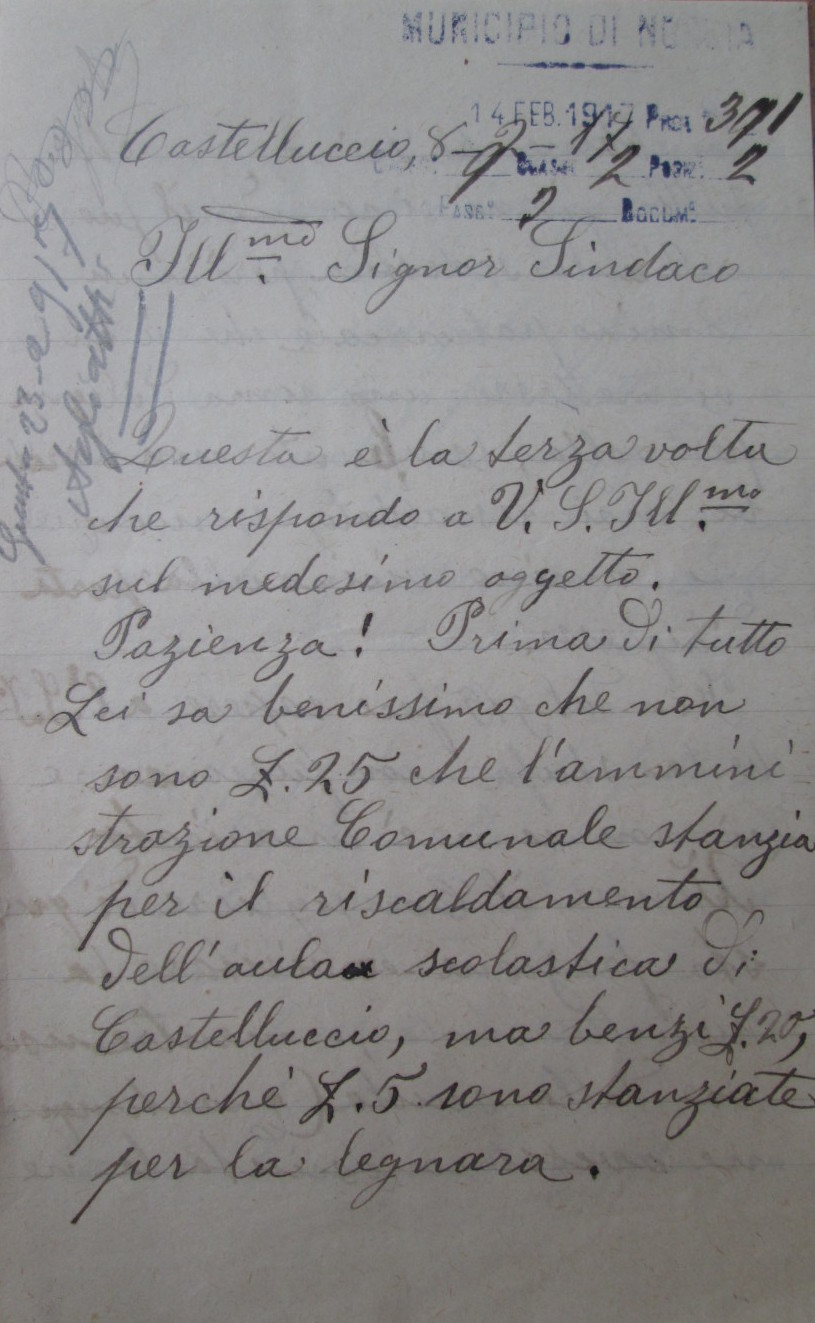 MUNICIPIO DI NORCIA
14 FEB. 1917 Prot. 371
Castelluccio, 8-2-17
9 Class. 2 Posiz. 2
Fasc. 2 Docum.
Ill.mo Signor Sindaco
Giunta 23-2-917
Questa è la terza volta
che rispondo a V. S. Ill.mo
sul medesimo oggetto.
Pazienza! Prima di tutto
Lei sa benissimo che non
sono £. 25 che l'ammini
strazione Comunale stanzia
per il riscaldamento
dell'aula scolastica di
Castelluccio, ma benzi £. 20,
perchè £. 5 sono stanziate
per la legnara.